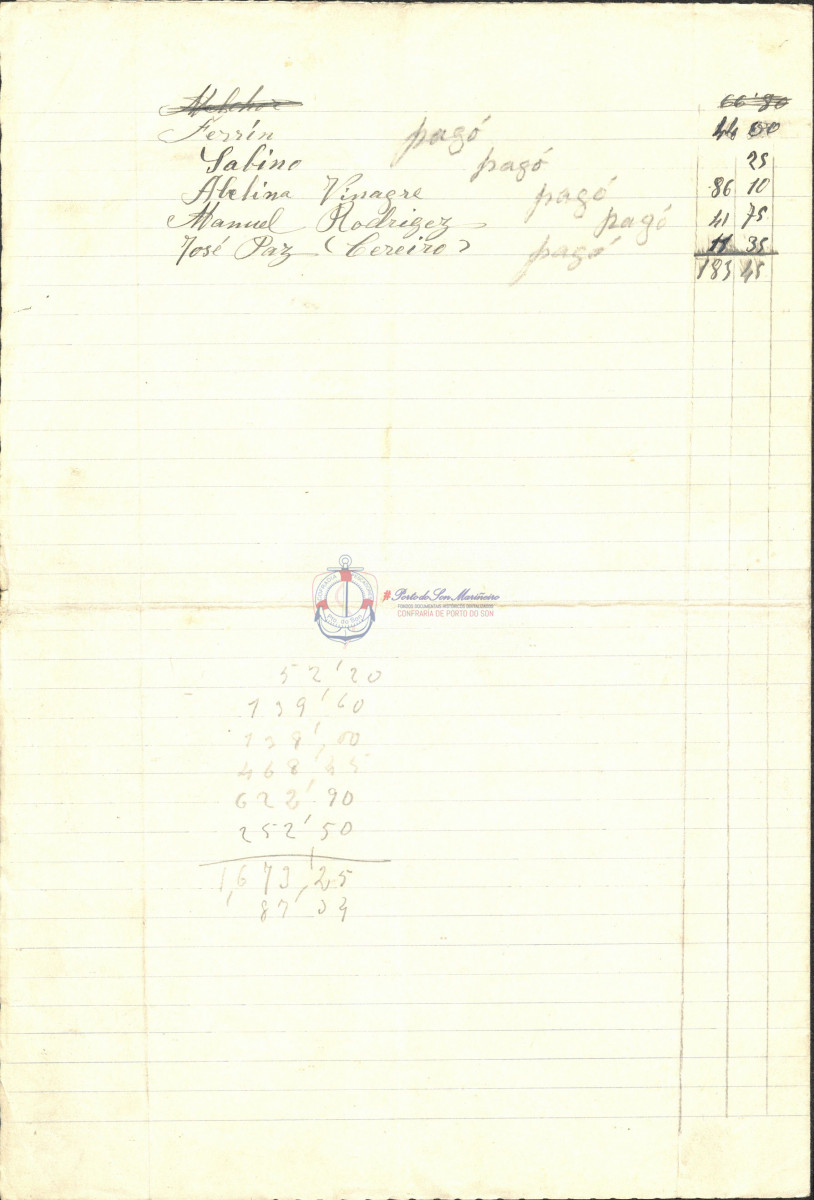 Melchor 66'80
Ferrín pagó 44 00
Sabino pagó 25
Abelina Vinagre pagó 86 10
Manuel Rodrigez pagó 41 75
José Paz (Cereiro) pagó 11 35
183 45
COFRADIA PESCADORES
Pto. do Son
#Porto do Son Mariñeiro
FONDOS DOCUMENTAIS HISTÓRICOS DIXITALIZADOS
CONFRARÍA DE PORTO DO SON
52'20
139'60
138',00
468'45
622'90
252'50
1,673,25